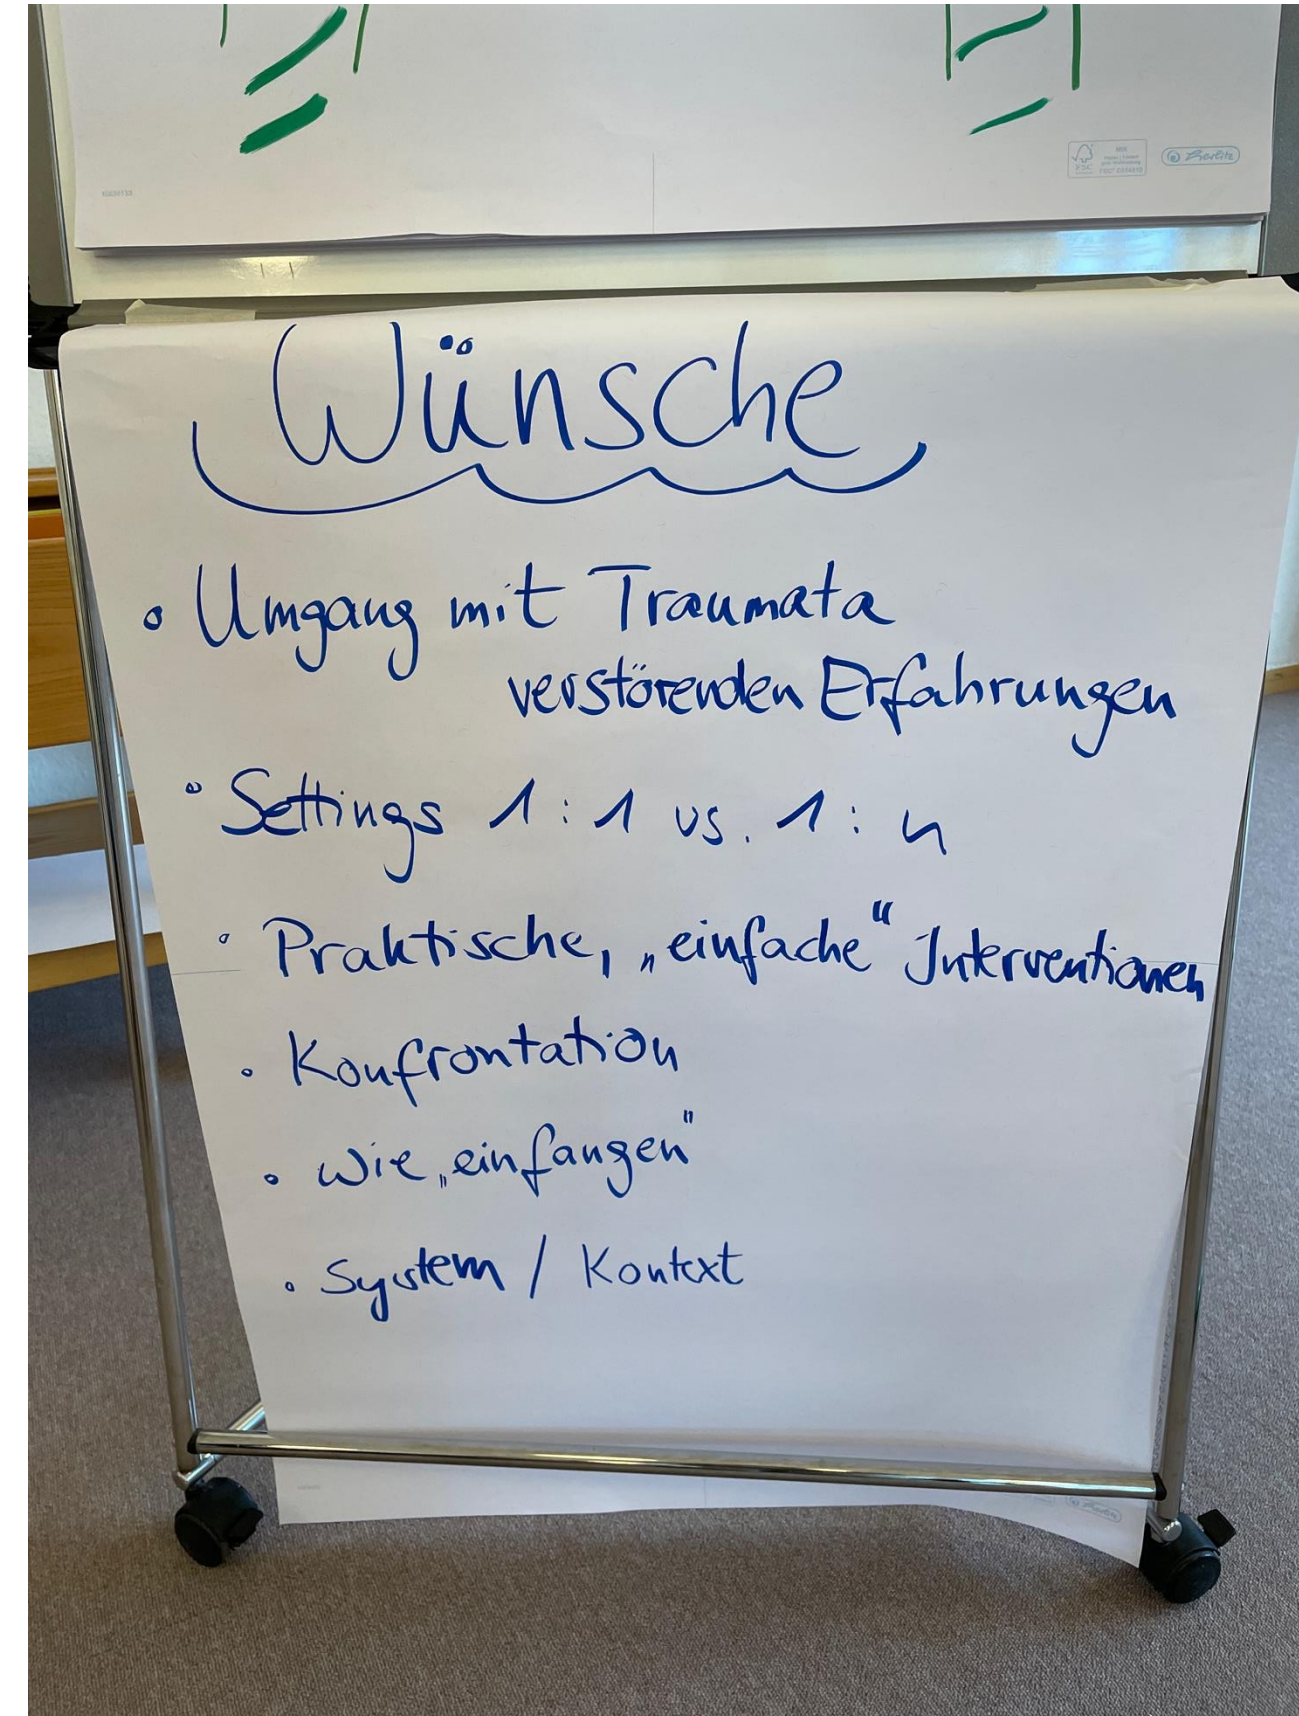 FSC
MIX
Herlitz
Wünsche
• Umgang mit Traumata
verstörenden Erfahrungen
• Settings 1:1 vs. 1:n
• Praktische, „einfache“ Interventionen
• Konfrontation
• Wie „einfangen“
• System / Kontext